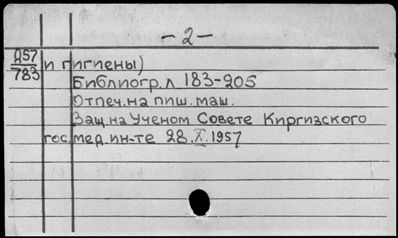 -2-
Д57
783 и гигиены)
Библиогр.л 183-205
Отпеч.на пиш.маш.
Защ.на Ученом Совете Киргизского
гос.мед.ин-те 28.X.1957